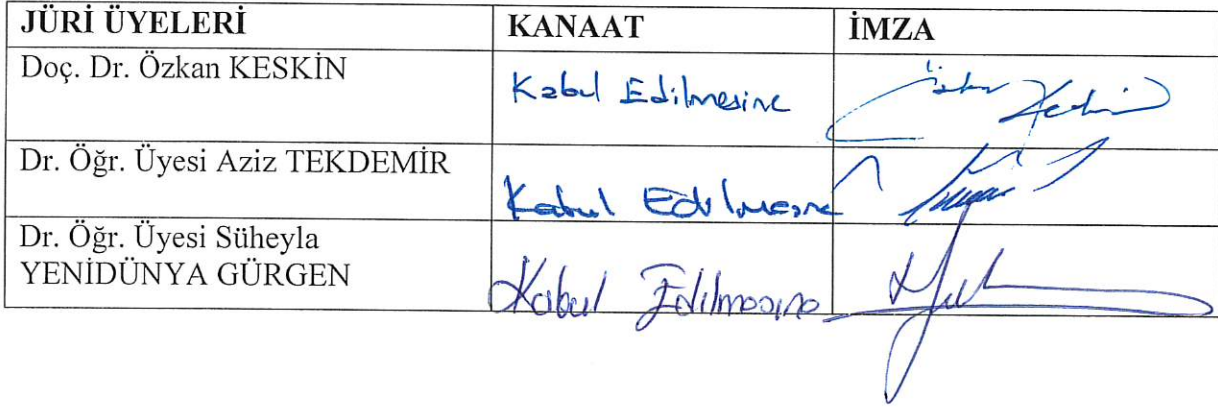 JÜRİ ÜYELERİ KANAAT İMZA
Doç. Dr. Özkan KESKİN Kabul Edilmesine
Dr. Öğr. Üyesi Aziz TEKDEMİR Kabul Edilmesine
Dr. Öğr. Üyesi Süheyla
YENİDÜNYA GÜRGEN Kabul Edilmesine